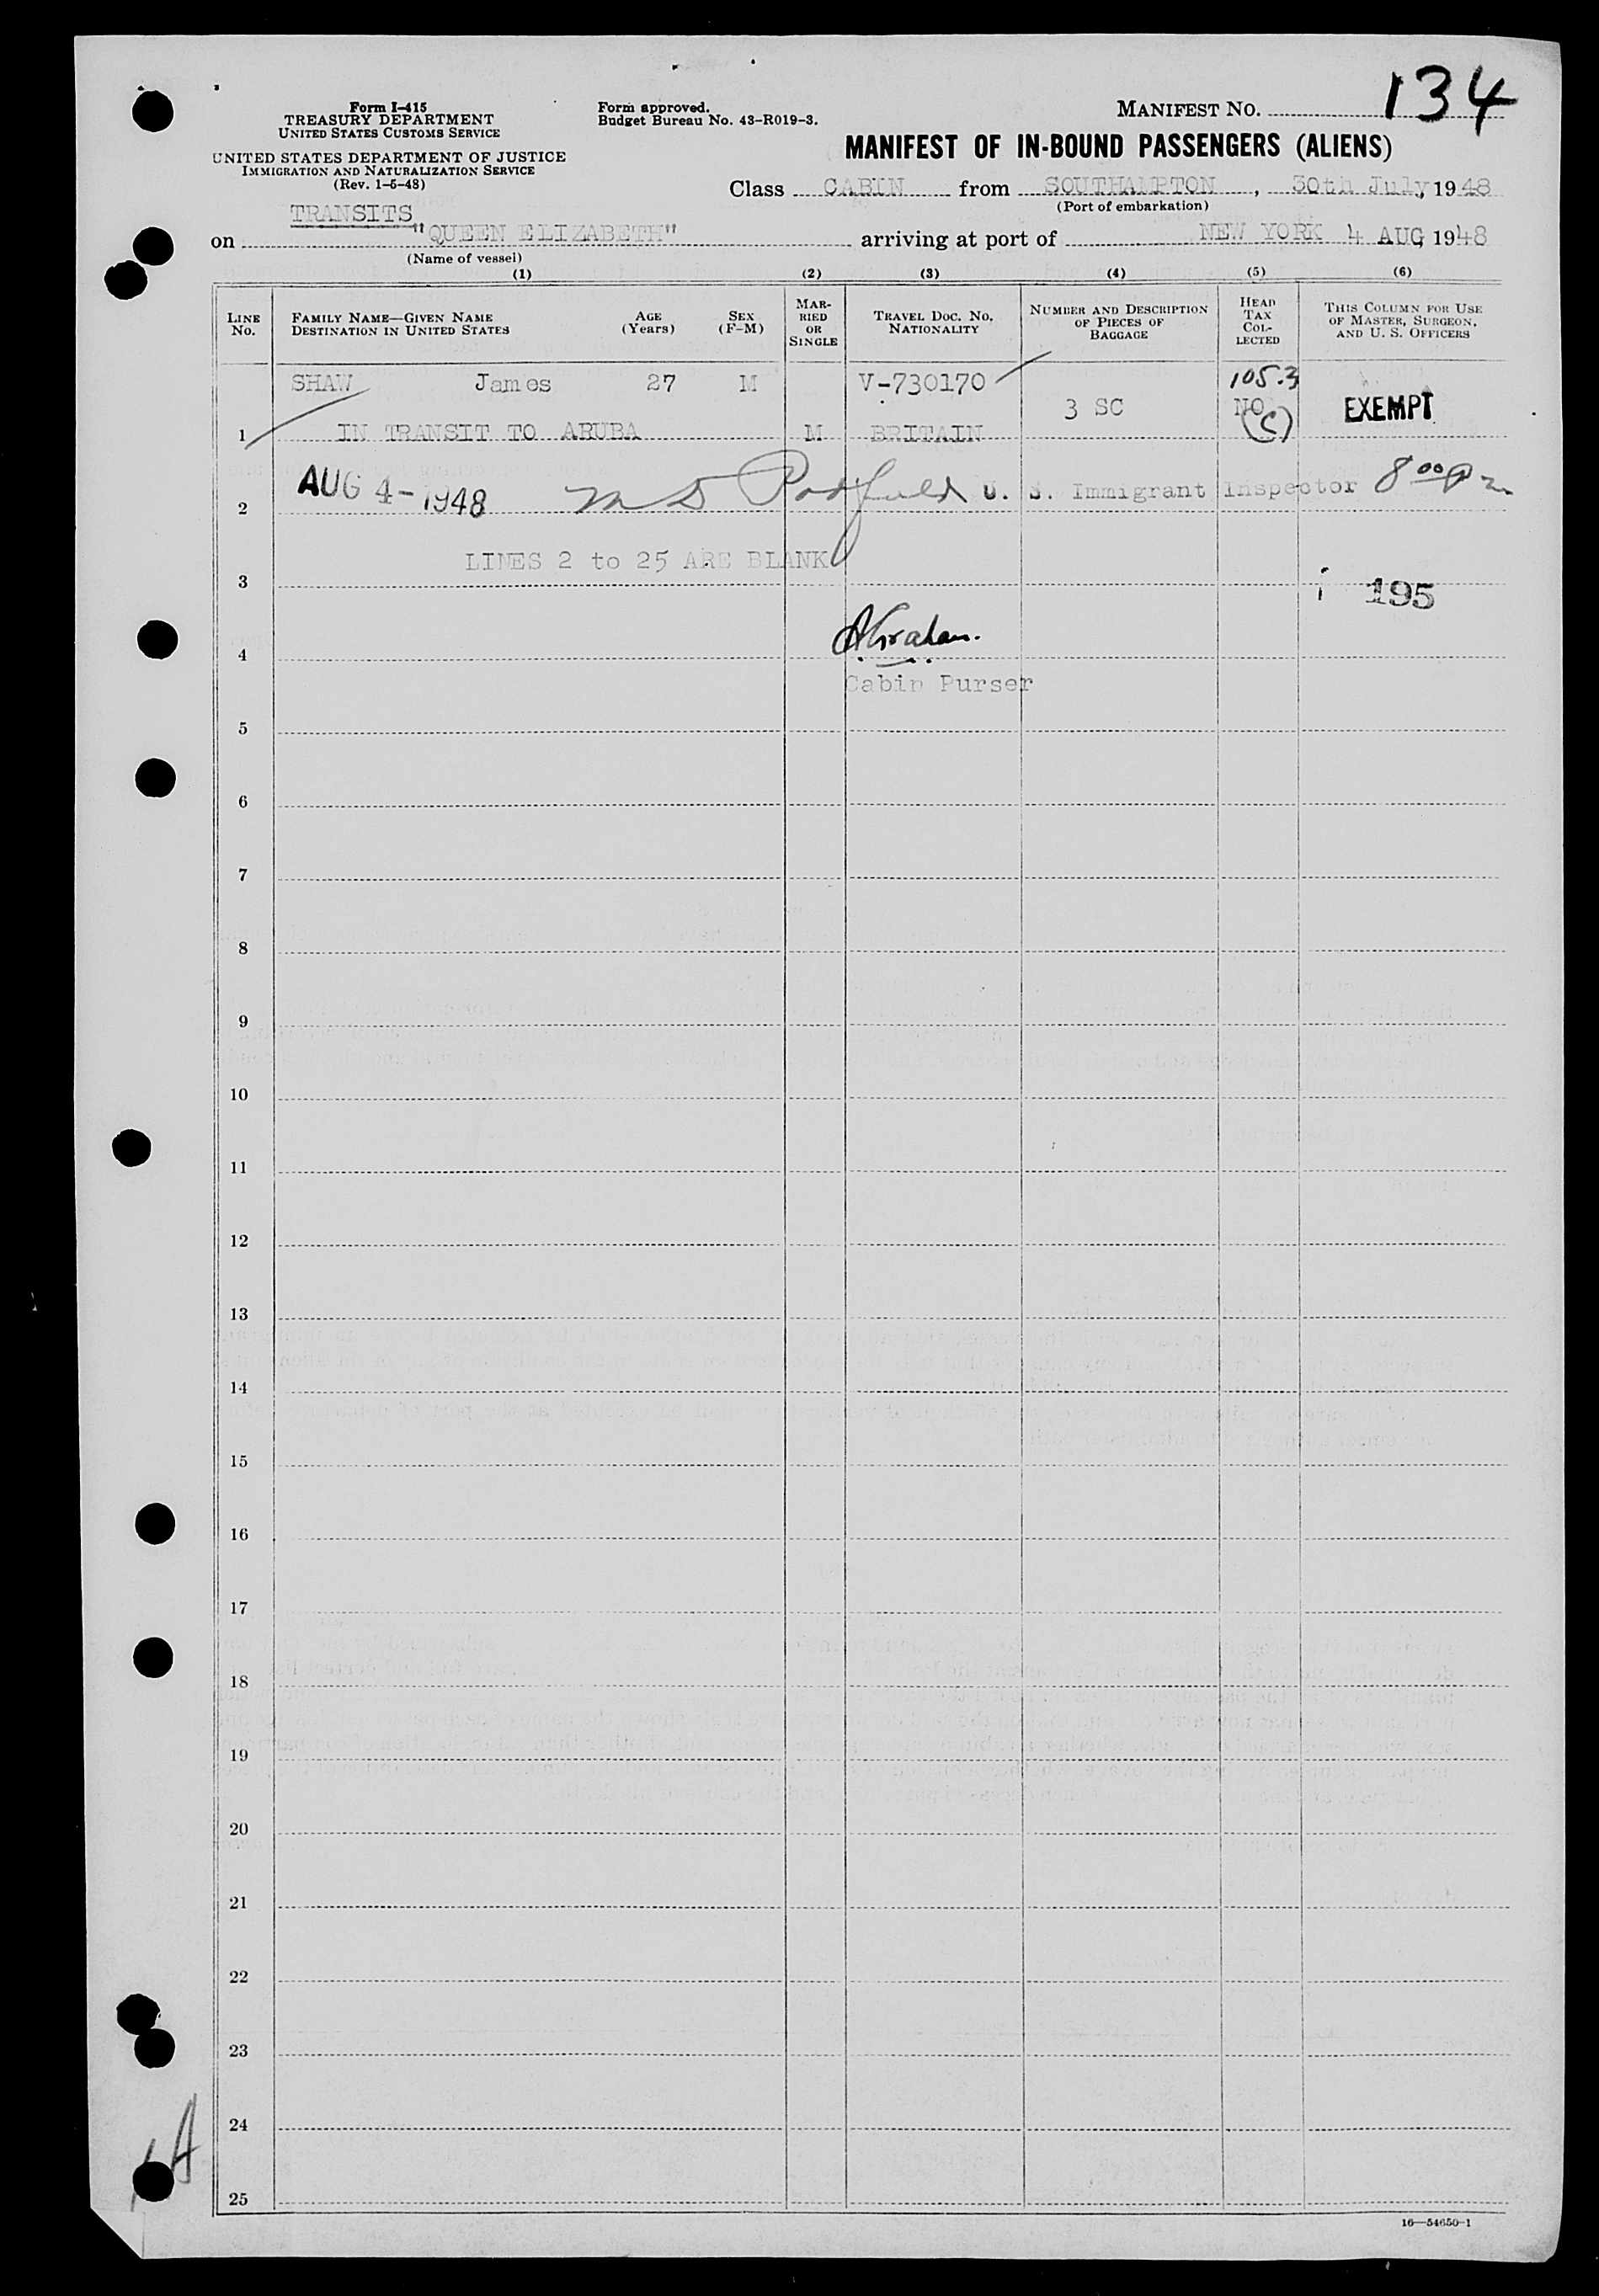 134
Form I-415
TREASURY DEPARTMENT
UNITED STATES CUSTOMS SERVICE
UNITED STATES DEPARTMENT OF JUSTICE
IMMIGRATION AND NATURALIZATION SERVICE
(Rev. 1-5-48)
Form approved.
Budget Bureau No. 43-R019-3.
MANIFEST NO.
MANIFEST OF IN-BOUND PASSENGERS (ALIENS)
Class CABIN from SOUTHAMPTON, 30th July, 1948
(Port of embarkation)
TRANSITS
on "QUEEN ELIZABETH" arriving at port of NEW YORK 4 AUG 1948
(Name of vessel)
(1) (2) (3) (4) (5) (6)
LINE NO.
FAMILY NAME—GIVEN NAME
DESTINATION IN UNITED STATES
AGE (Years)
SEX (F-M)
MARRIED OR SINGLE
TRAVEL DOC. NO. NATIONALITY
NUMBER AND DESCRIPTION OF PIECES OF BAGGAGE
HEAD TAX COLLECTED
THIS COLUMN FOR USE OF MASTER, SURGEON, AND U. S. OFFICERS
SHAW James 27 M V-730170 105.3
3 SC NO (C) EXEMPT
1 IN TRANSIT TO ARUBA M BRITAIN
AUG 4-1948 U. S. Immigrant Inspector 8 00 P m
2
LINES 2 to 25 ARE BLANK
3 195
4
Cabin Purser
5
6
7
8
9
10
11
12
13
14
15
16
17
18
19
20
21
22
23
24
25
16—54650-1